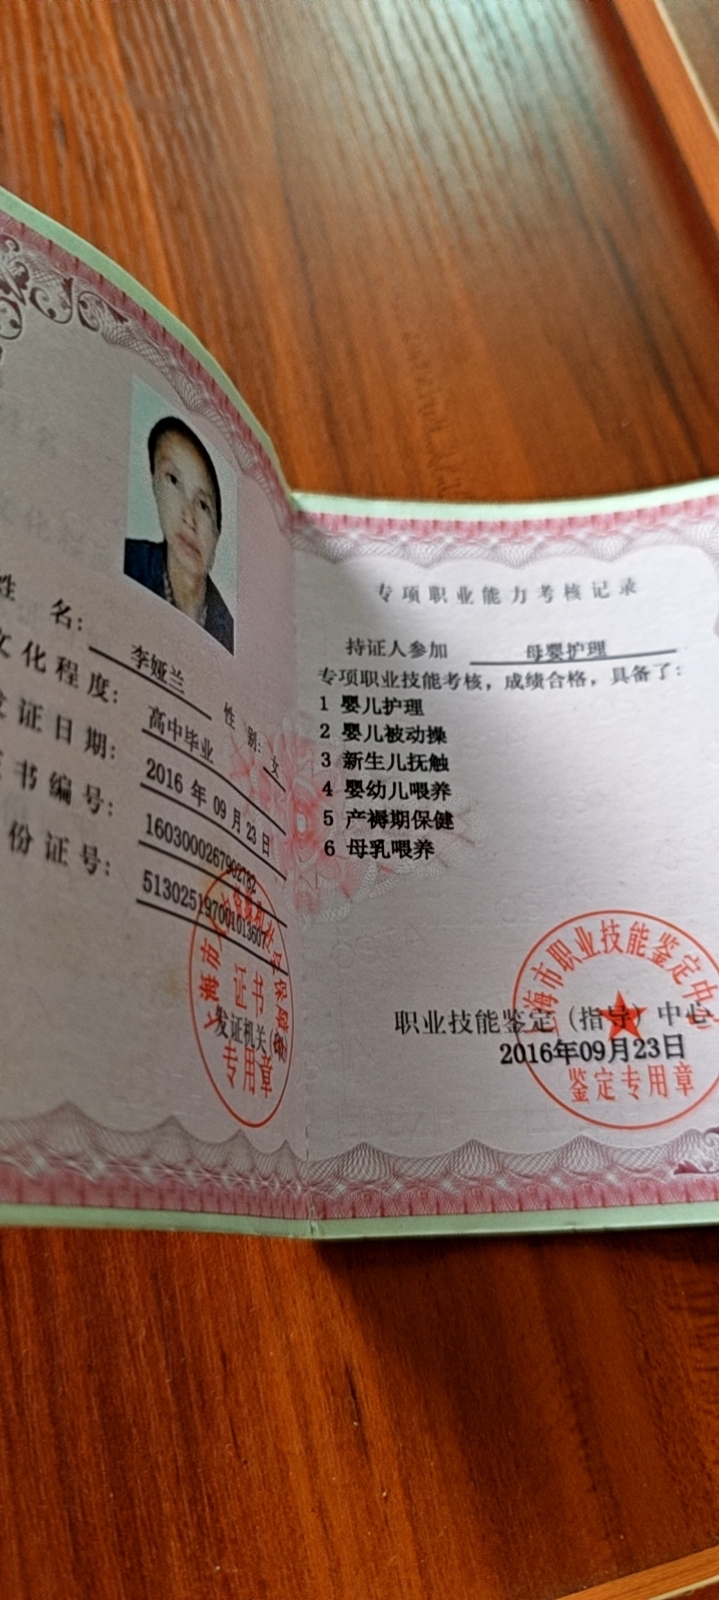 姓 名: 李娅兰 性 别: 女
文化程度: 高中毕业
发证日期: 2016 年 09 月 23 日
证书编号: 1603000267902782
份证号: 513025197001013607
证书
发证机关(
专用章
专项职业能力考核记录
持证人参加 母婴护理
专项职业技能考核，成绩合格，具备了：
1 婴儿护理
2 婴儿被动操
3 新生儿抚触
4 婴幼儿喂养
5 产褥期保健
6 母乳喂养
海市职业技能鉴定中心
职业技能鉴定（指导）中心
2016年09月23日
鉴定专用章